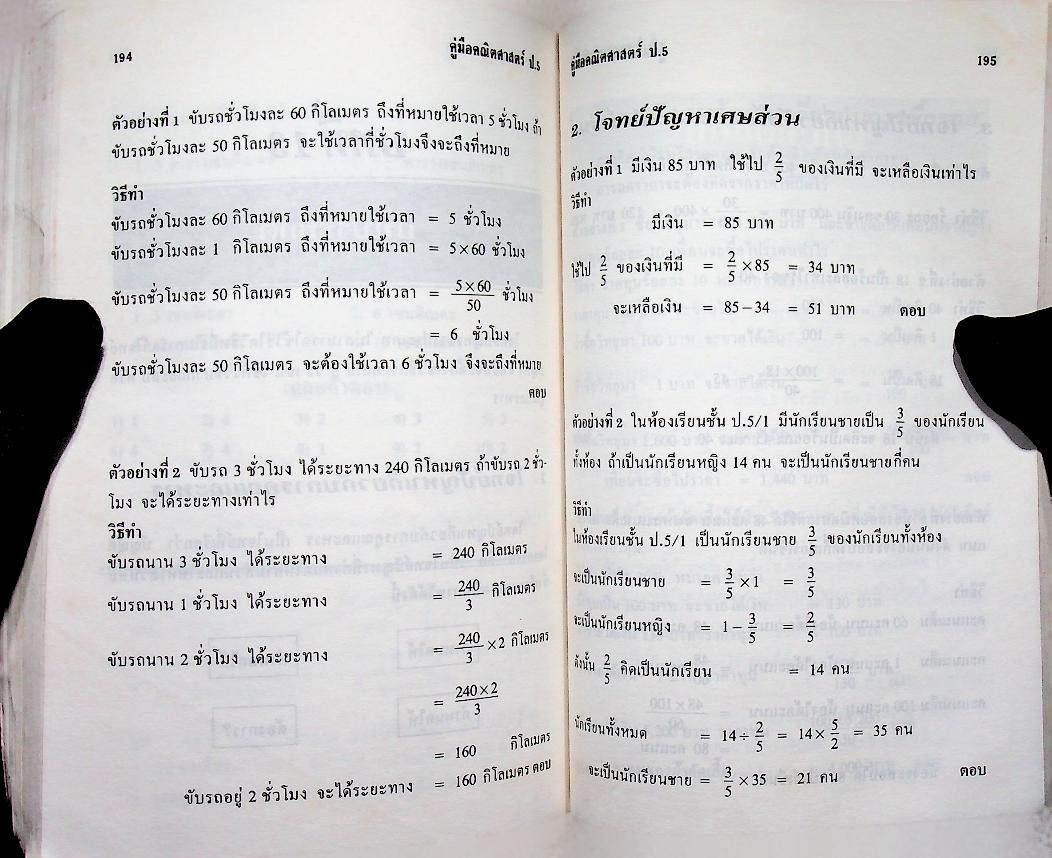 194
คู่มือคณิตศาสตร์ ป.5
ตัวอย่างที่ 1 ขับรถชั่วโมงละ 60 กิโลเมตร ถึงที่หมายใช้เวลา 5 ชั่วโมง ถ้า
ขับรถชั่วโมงละ 50 กิโลเมตร จะใช้เวลากี่ชั่วโมงจึงจะถึงที่หมาย
วิธีทำ
ขับรถชั่วโมงละ 60 กิโลเมตร ถึงที่หมายใช้เวลา = 5 ชั่วโมง
ขับรถชั่วโมงละ 1 กิโลเมตร ถึงที่หมายใช้เวลา = 5×60 ชั่วโมง
ขับรถชั่วโมงละ 50 กิโลเมตร ถึงที่หมายใช้เวลา = 5×60/50 ชั่วโมง
= 6 ชั่วโมง
ขับรถชั่วโมงละ 50 กิโลเมตร จะต้องใช้เวลา 6 ชั่วโมง จึงจะถึงที่หมาย
ตอบ
ตัวอย่างที่ 2 ขับรถ 3 ชั่วโมง ได้ระยะทาง 240 กิโลเมตร ถ้าขับรถ 2 ชั่ว-
โมง จะได้ระยะทางเท่าไร
วิธีทำ
ขับรถนาน 3 ชั่วโมง ได้ระยะทาง = 240 กิโลเมตร
ขับรถนาน 1 ชั่วโมง ได้ระยะทาง = 240/3 กิโลเมตร
ขับรถนาน 2 ชั่วโมง ได้ระยะทาง = 240/3 ×2 กิโลเมตร
= 240×2/3
= 160 กิโลเมตร
ขับรถอยู่ 2 ชั่วโมง จะได้ระยะทาง = 160 กิโลเมตร ตอบ
คู่มือคณิตศาสตร์ ป.5
195
2. โจทย์ปัญหาเศษส่วน
ตัวอย่างที่ 1 มีเงิน 85 บาท ใช้ไป 2/5 ของเงินที่มี จะเหลือเงินเท่าไร
วิธีทำ
มีเงิน = 85 บาท
ใช้ไป 2/5 ของเงินที่มี = 2/5 ×85 = 34 บาท
จะเหลือเงิน = 85−34 = 51 บาท ตอบ
ตัวอย่างที่ 2 ในห้องเรียนชั้น ป.5/1 มีนักเรียนชายเป็น 3/5 ของนักเรียน
ทั้งห้อง ถ้าเป็นนักเรียนหญิง 14 คน จะเป็นนักเรียนชายกี่คน
วิธีทำ
ในห้องเรียนชั้น ป.5/1 เป็นนักเรียนชาย 3/5 ของนักเรียนทั้งห้อง
จะเป็นนักเรียนชาย = 3/5 ×1 = 3/5
จะเป็นนักเรียนหญิง = 1−3/5 = 2/5
ดังนั้น 2/5 คิดเป็นนักเรียน = 14 คน
นักเรียนทั้งหมด = 14÷2/5 = 14×5/2 = 35 คน
จะเป็นนักเรียนชาย = 3/5 ×35 = 21 คน ตอบ